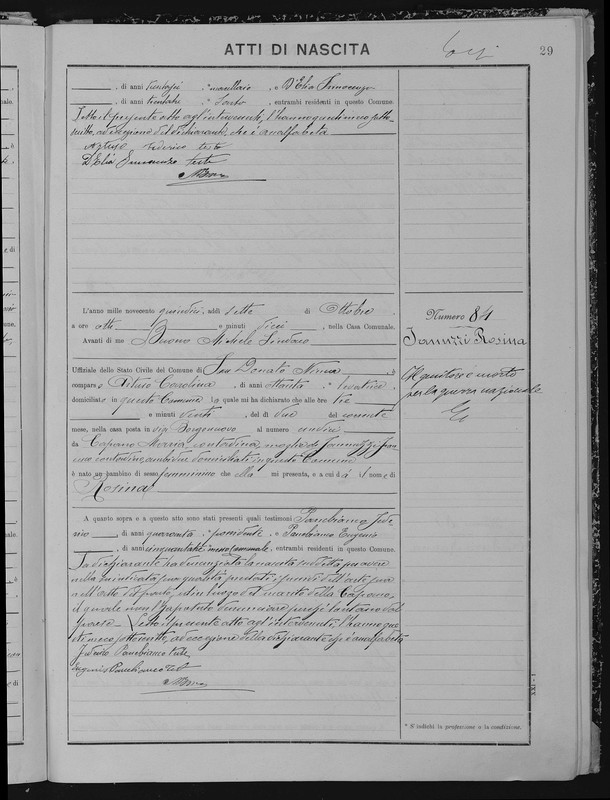 ATTI DI NASCITA
29
, di anni trentasei , macellaio , e D'Elia Innocenzo
, di anni trentatre , Sarto , entrambi residenti in questo Comune.
Letto il presente atto agl'intervenuti, l'hanno quinti meco sotto-
scritto, ad eccezione del dichiarante, che è analfabeta
Federico teste
D'Elia Innocenzo teste
L'anno mille novecento quindici, addì sette di Ottobre
a ore otto e minuti dieci , nella Casa Comunale.
Avanti di me Buono Michele Sindaco
Uffiziale dello Stato Civile del Comune di San Donato Ninea
è comparsa Carolina , di anni ottanta , levatrice
domiciliata in questo Comune la quale mi ha dichiarato che alle ore tre
e minuti venti , del dì due del corrente
mese, nella casa posta in via Borgonuovo al numero undici
da Capano Maria, contadina, moglie di Iannuzzi
contadino, ambidue domiciliati in questo Comune
è nato un bambino di sesso femminino che ella mi presenta, e a cui dà il nome di
Rosina
A quanto sopra e a questo atto sono stati presenti quali testimoni Panebianco Fede
rico , di anni quaranta , possidente , e Panebianco Eugenio
, di anni cinquantatre messo comunale , entrambi residenti in questo Comune.
La dichiarante ha denunziata la nascita suddetta per avere
nella indicata sua qualità prestati i servizi dell'arte sua
nell'atto del parto, ed in luogo del marito della Capano,
il quale non ha potuto denunciare perché lontano dal
paese. Letto il presente atto agl'intervenuti, l'hanno que
sti meco sottoscritto, ad eccezione della dichiarante che è analfabeta
Federico Panebianco teste
Eugenio Panebianco test
Numero 84
Ianuzzi Rosina
Il genitore è morto
per la guerra nazionale
XXI - 1
* S'indichi la professione o la condizione.